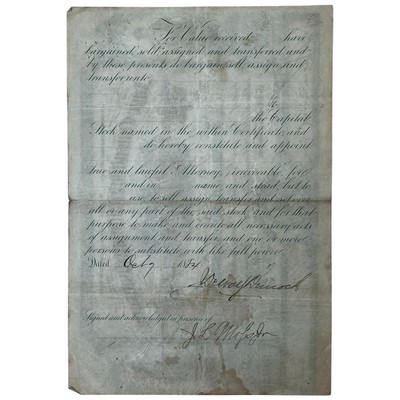 For Value received have
bargained, sold, assigned and transferred and
by these presents do bargain, sell, assign and
transfer unto
the Capital
Stock named in the within Certificate, and
do hereby constitute and appoint
true and lawful Attorney, irrevocable for
and in name and stead, but to
use, to sell, assign, transfer and set over
all or any part of the said stock, and for that
purpose to make and execute all necessary acts
of assignment and transfer, and one or more
persons to substitute with like full power.
Dated Oct 7
Signed and acknowledged in presence of
J. L.